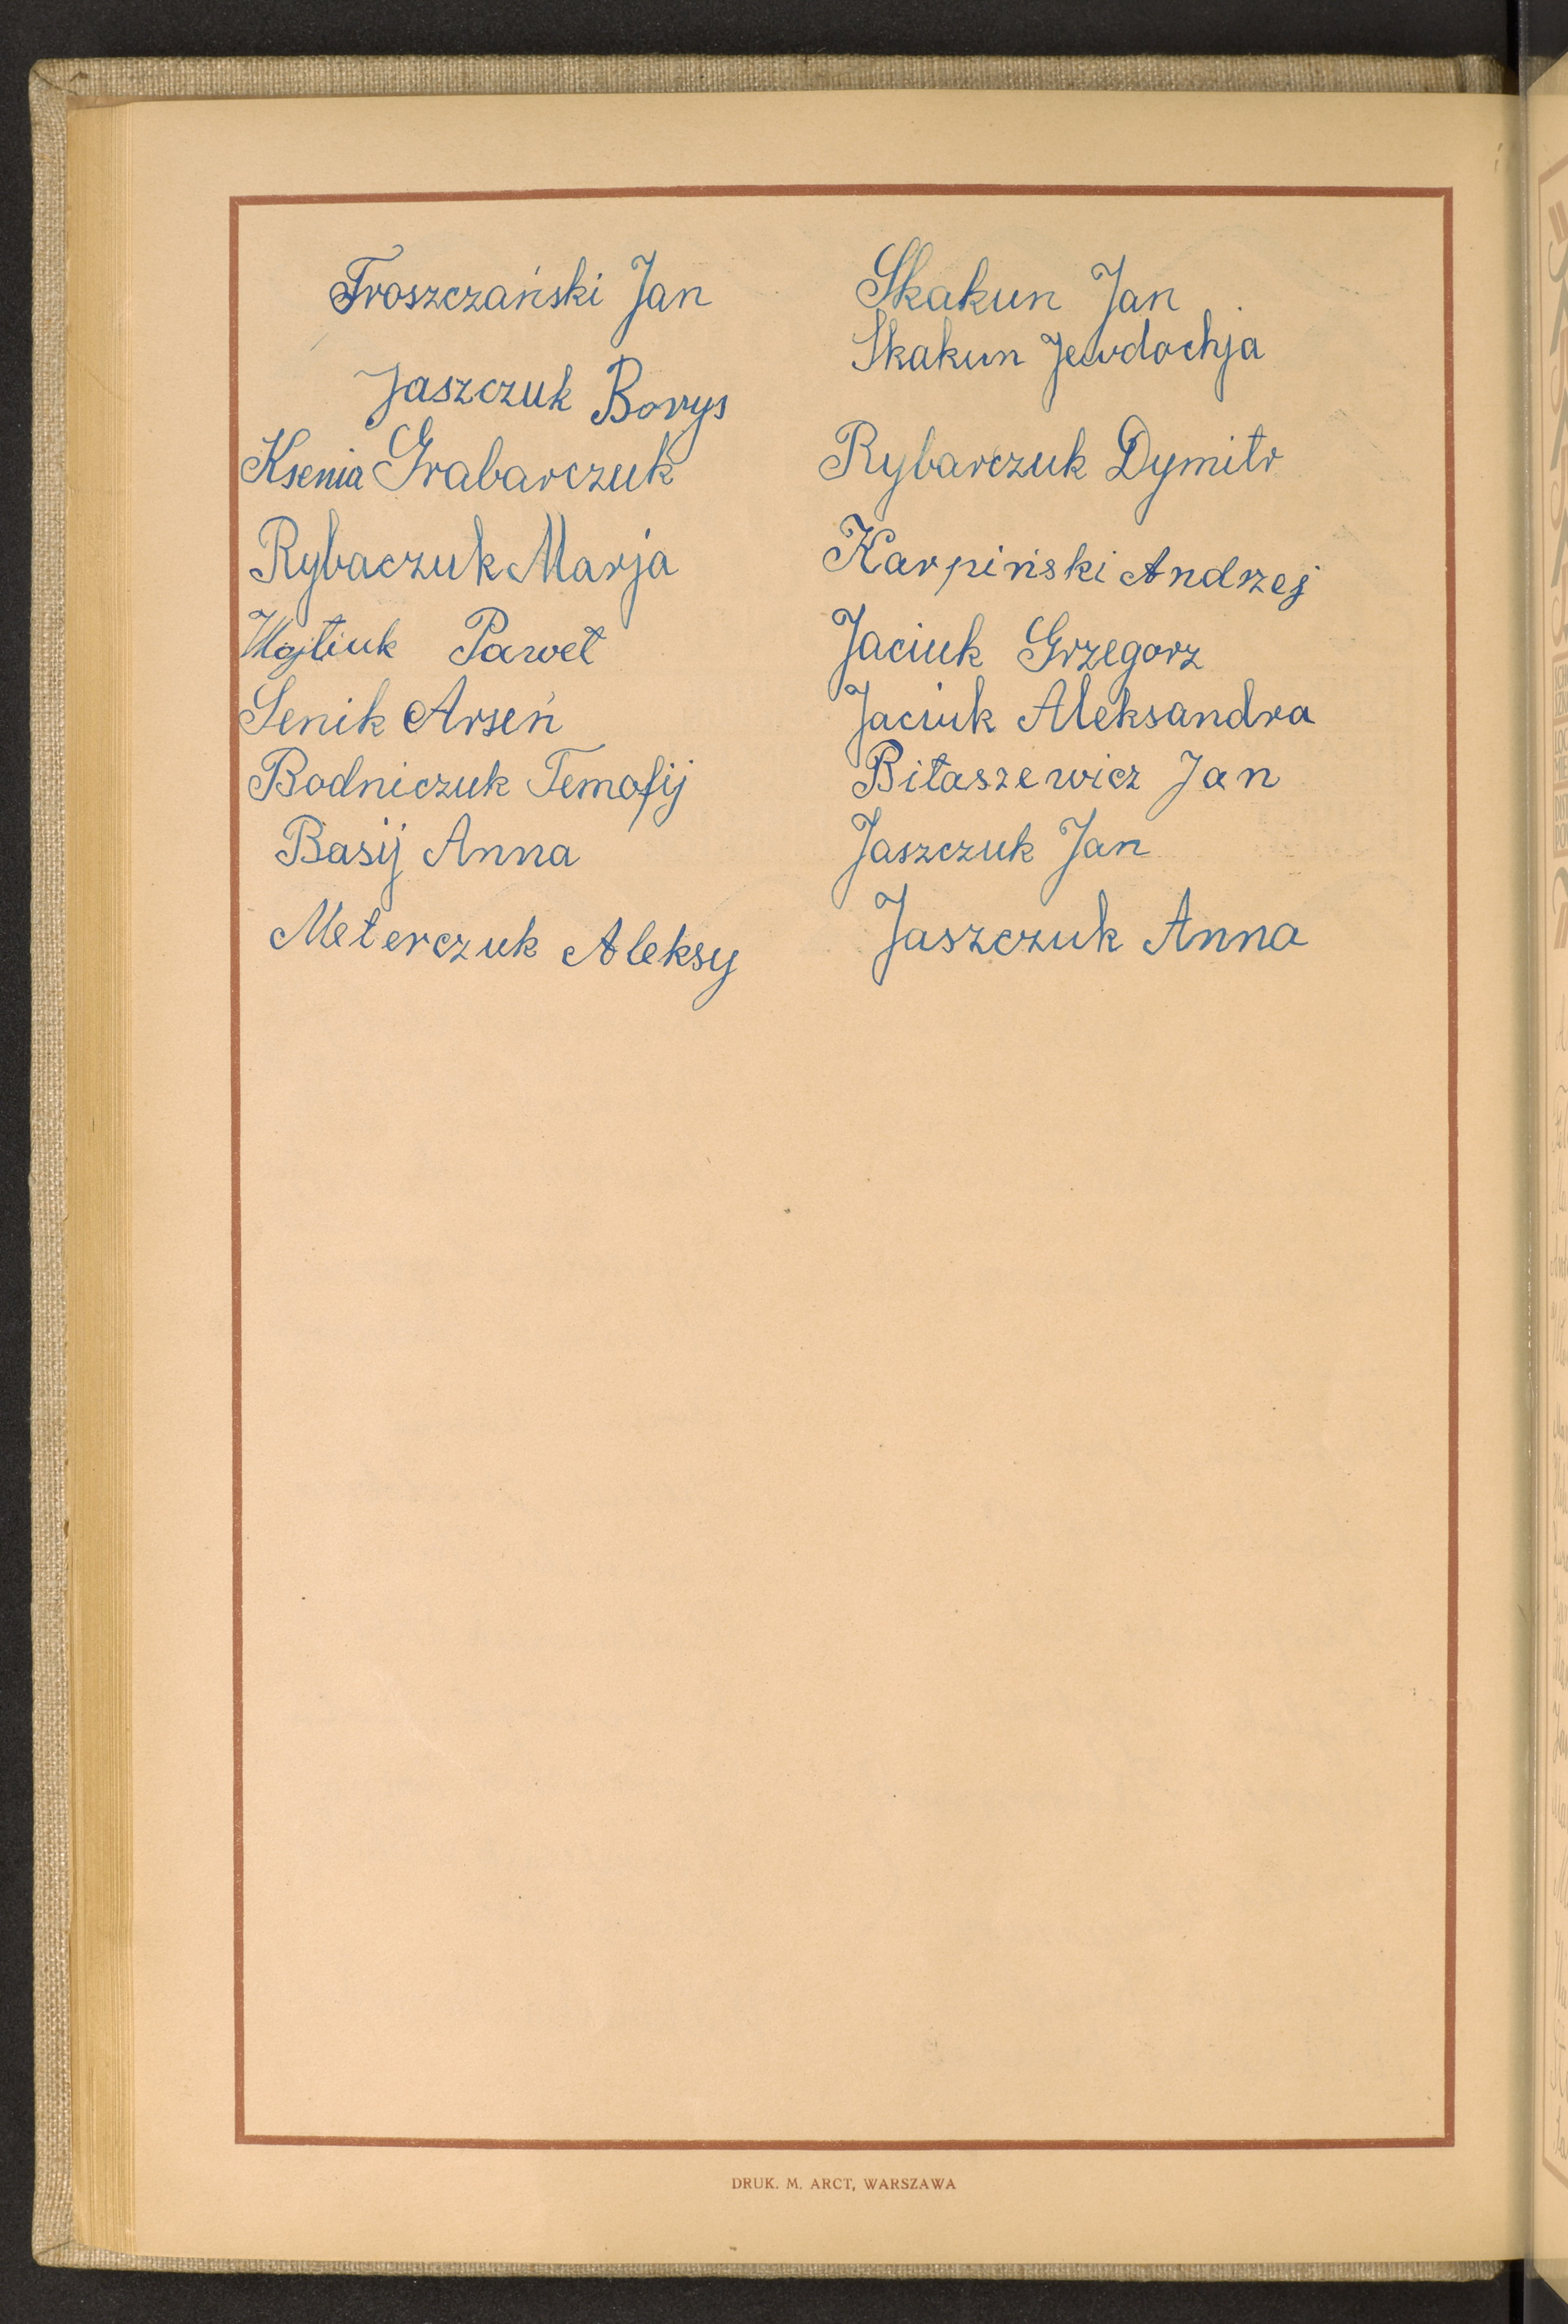 Troszczański Jan
Jaszczuk Borys
Ksenia Grabarczuk
Rybaczuk Marja
Wojtiuk Paweł
Senik Arseń
Bodniczuk Temofij
Basij Anna
Meterczuk Aleksy
Skakun Jan
Skakun Jewdochja
Rybarczuk Dymitr
Karpiński Andrzej
Jaciuk Grzegorz
Jaciuk Aleksandra
Biłaszewicz Jan
Jaszczuk Jan
Jaszczuk Anna
DRUK. M. ARCT, WARSZAWA